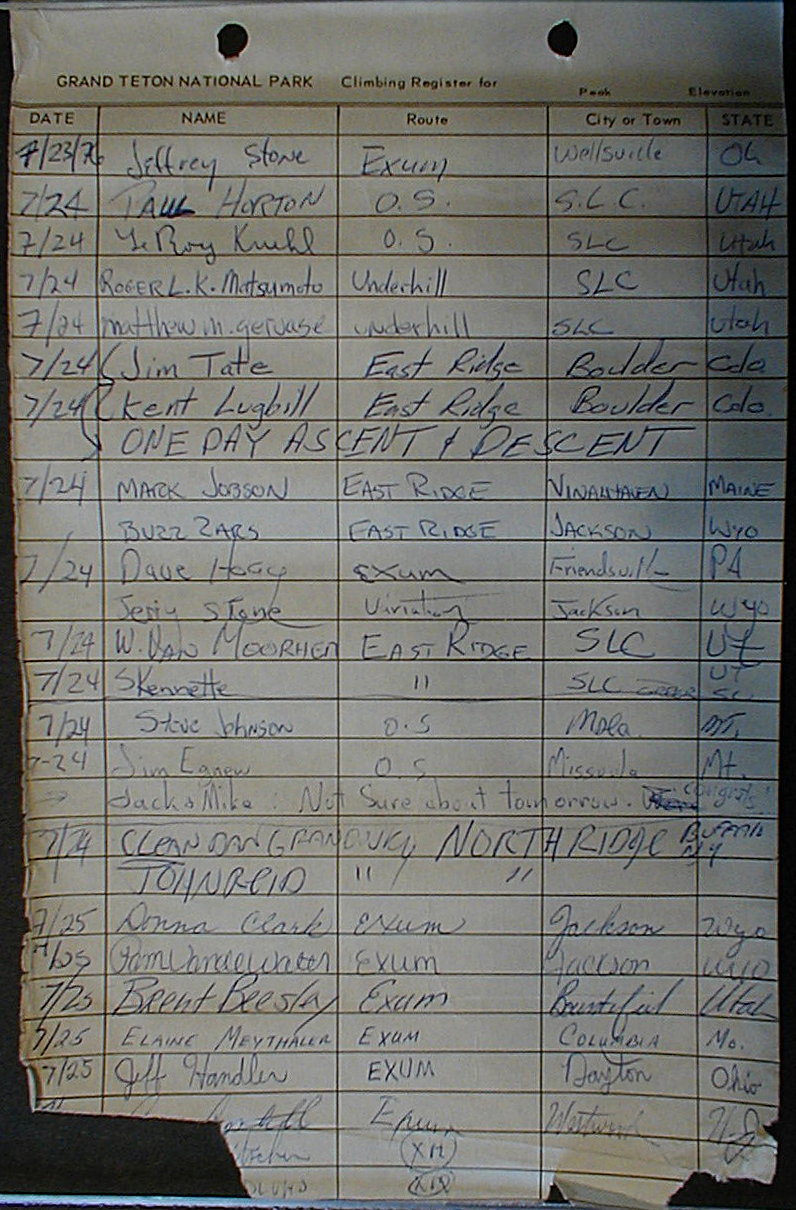 GRAND TETON NATIONAL PARK Climbing Register for Peak Elevation
DATE NAME Route City or Town STATE
7/23/76 Jeffrey Stone Exum Wellsville Oh
7/24 PAUL HORTON O.S. S.L.C. UTAH
7/24 LeRoy Kuehl O.S. SLC Utah
7/24 ROGER L.K. Matsumoto Underhill SLC Utah
7/24 matthew m. gervase underhill SLC Utah
7/24 Jim Tate East Ridge Boulder Colo
7/24 Kent Lugbill East Ridge Boulder Colo.
ONE DAY ASCENT & DESCENT
7/24 MARK JOBSON EAST RIDGE VINALHAVEN MAINE
BUZZ ZARS EAST RIDGE JACKSON WYO
7/24 Dave Exum Friendsville PA
Jerry Stone Variation Jackson Wyo
7/24 W. VAN MOORHEM EAST RIDGE SLC UT
7/24 SKennette " SLC UT
7/24 Steve Johnson O.S Msla. MT.
7-24 Jim Egnew O.S Missoula Mt.
→ Jack & Mike: Not Sure about tomorrow. congrats!
7/24 DAN NORTH RIDGE BUFFALO NY
JOHN REID " "
7/25 Donna Clark Exum Jackson Wyo
7/25 Pam Vandewater Exum Jackson WYO
7/25 Brent Beesley Exum Bountiful Utah
7/25 ELAINE MEYTHALER EXUM COLUMBIA Mo.
7/25 Jeff Handler EXUM Dayton Ohio
Exum Westwood NJ